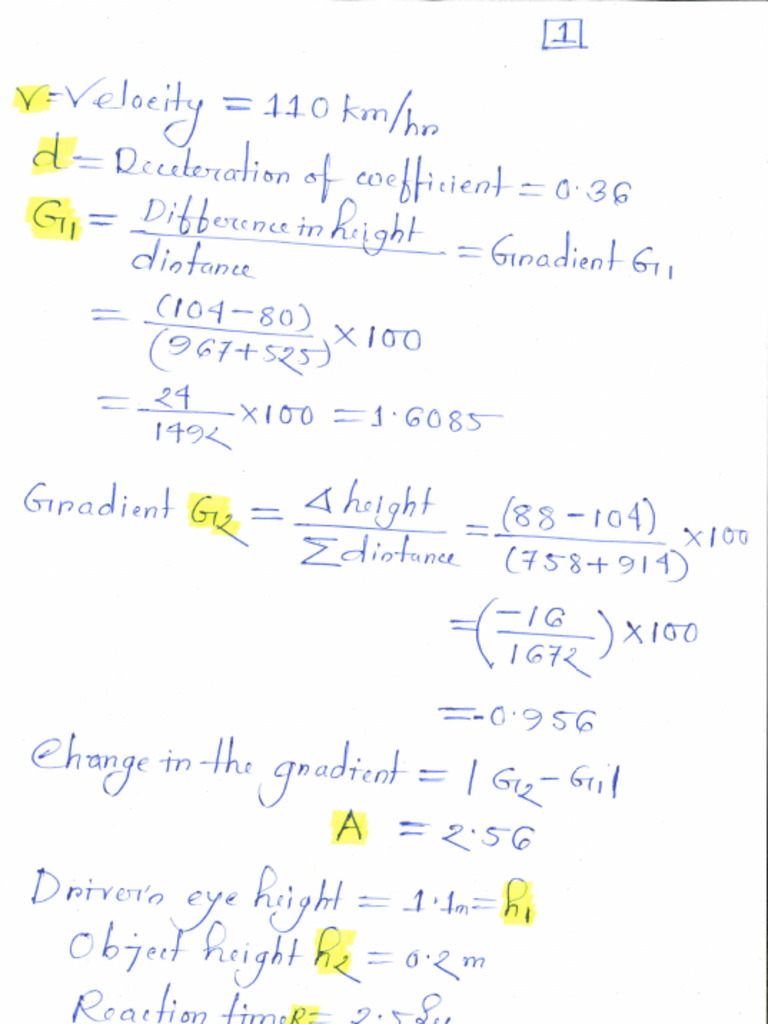 1
V=Velocity = 110 km/hr
d = Deceleration of coefficient = 0.36
G1 = Difference in height / distance = Gradient G1
= (104-80) / (967+525) × 100
= 24 / 1492 × 100 = 1.6085
Gradient G2 = Δ height / Σ distance = (88-104) / (758+914) × 100
= (-16 / 1672) × 100
=-0.956
Change in the gradient = | G2 - G1 |
A = 2.56
Driver's eye height = 1.1m = h1
Object height h2 = 0.2 m
Reaction time R = 2.5 Sec